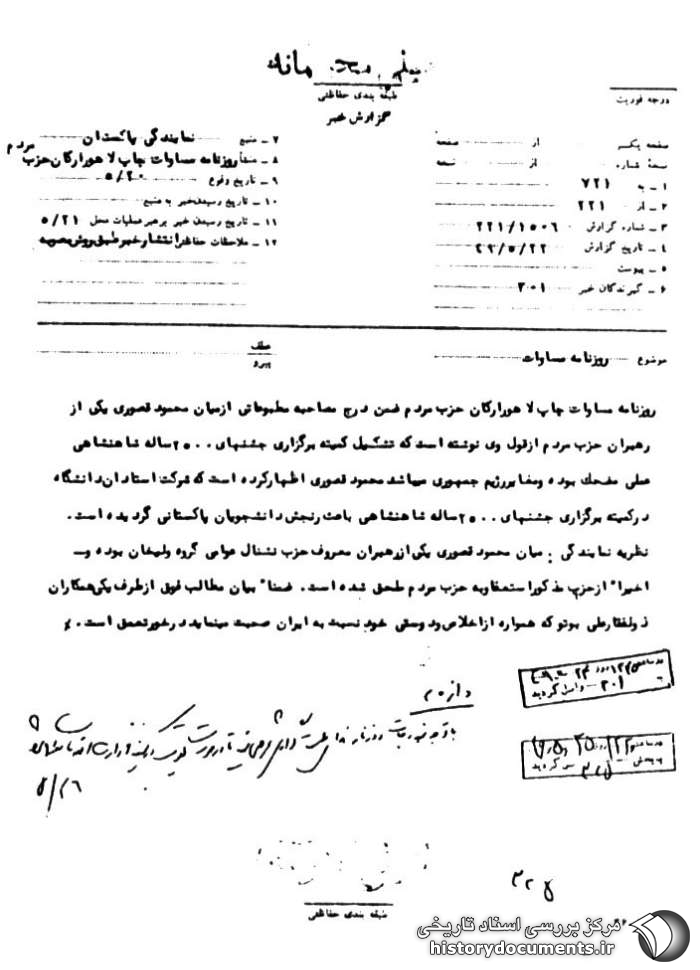 خیلی محرمانه
طبقه بندی حفاظتی
گزارش خبر
درجه فوریت
صفحه یک از صفحه
نسخه شماره از نسخه
۱ - به ۷۲۱
۲ - از ۲۲۱
۳ - شماره گزارش ۲۲۱/۱۵۰۶
۴ - تاریخ گزارش ۴۹/۵/۲۲
۵ - پیوست
۶ - گیرندگان خبر ۳۰۱
۷ - منبع نمایندگی پاکستان
۸ - منشأ روزنامه مساوات چاپ لاهور ارگان حزب مردم
۹ - تاریخ وقوع ۵/۲۰
۱۰ - تاریخ رسیدن خبر به منبع
۱۱ - تاریخ رسیدن خبر برهبر عملیات محل ۵/۲۱
۱۲ - ملاحظات حفاظتی انتشار خبر طبق روش مصوبه
موضوع روزنامه مساوات
عطف
پیرو
روزنامه مساوات چاپ لاهور ارگان حزب مردم ضمن درج مصاحبه مطبوعاتی از میان محمود قصوری یکی از
رهبران حزب مردم از قول وی نوشته است که تشکیل کمیته برگزاری جشنهای ۲۵۰۰ ساله شاهنشاهی
عملی مضحک بوده و مغایر رژیم جمهوری میباشد محمود قصوری اظهار کرده است که شرکت استادان دانشگاه
در کمیته برگزاری جشنهای ۲۵۰۰ ساله شاهنشاهی باعث رنجش دانشجویان پاکستانی گردیده است.
نظریه نمایندگی : میان محمود قصوری یکی از رهبران معروف حزب نشنال عوامی گروه ولیخان بوده و
اخیرا" از حزب مذکور استعفا و به حزب مردم ملحق شده است. ضمنا" بیان مطالب فوق از طرف یکی همکاران
ذولفقار علی بوتو که همواره از اخلاص و دوستی خود نسبت به ایران صحبت مینماید در خور تعمق است.
۵/۲۶
۳۲۵
طبقه بندی حفاظتی
مرکز بررسی اسناد تاریخی
historydocuments.ir